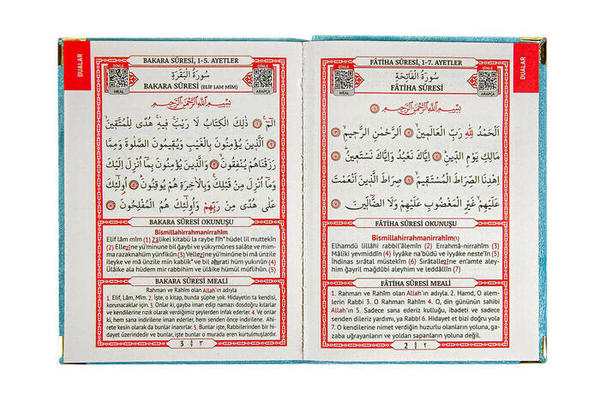 DUALAR
FÂTİHA SÛRESİ, 1-7. AYETLER
DİNLE
سُورَةُ الْفَاتِحَةِ
FÂTİHA SÛRESİ
ARAPÇA
بِسْمِ اللّٰهِ الرَّحْمٰنِ الرَّحِيمِ
اَلْحَمْدُ لِلّٰهِ رَبِّ الْعَالَمِينَ ۝ اَلرَّحْمٰنِ الرَّحِيمِ ۝
مَالِكِ يَوْمِ الدِّينِ ۝ اِيَّاكَ نَعْبُدُ وَاِيَّاكَ نَسْتَعِينُ ۝
اِهْدِنَا الصِّرَاطَ الْمُسْتَقِيمَ ۝ صِرَاطَ الَّذِينَ اَنْعَمْتَ
عَلَيْهِمْ غَيْرِ الْمَغْضُوبِ عَلَيْهِمْ وَلَا الضَّالِّينَ ۝
FÂTİHA SÛRESİ OKUNUŞU
Bismillahirrahmanirrahîm(1)
Elhamdü lillâhi rabbi'âlemîn (2) Errahmâ-nirrahîm (3)
Mâliki yevmiddîn (4) İyyâke na'büdü ve iyyâke neste'în (5)
İhdinas sırâtal müstekîm (6) Sırâtallezîne en'amte aley-
him ğayril mağdûbi aleyhim ve leddâllîn (7)
FÂTİHA SÛRESİ MEALİ
1. Rahman ve Rahîm olan Allah'ın adıyla. 2. Hamd, O alem-
lerin Rabbi 3. O Rahman Rahîm 4. O, din gününün sahibi
Allah'ın 5. Sadece sana ederiz kulluğu, ibadeti ve sadece
senden dileriz yardımı, ya Rabbi! 6. Hidayet et bizi doğru yola
7. O kendilerine nimet verdiğin huzurlu olanların yoluna, ga-
zaba uğrayanların ve yoldan sapanların yoluna değil.
2 ٢
DUALAR
BAKARA SÛRESİ, 1-5. AYETLER
DİNLE
سُورَةُ الْبَقَرَةِ
BAKARA SÛRESİ (ELİF LAM MİM)
MEAL
بِسْمِ اللّٰهِ الرَّحْمٰنِ الرَّحِيمِ
الٓمٓ ۝ ذٰلِكَ الْكِتَابُ لَا رَيْبَ فِيهِ هُدًى لِلْمُتَّقِينَ
۝ اَلَّذِينَ يُؤْمِنُونَ بِالْغَيْبِ وَيُقِيمُونَ الصَّلٰوةَ وَمِمَّا
رَزَقْنَاهُمْ يُنْفِقُونَ ۝ وَالَّذِينَ يُؤْمِنُونَ بِمَٓا اُنْزِلَ اِلَيْكَ
وَمَٓا اُنْزِلَ مِنْ قَبْلِكَ وَبِالْاٰخِرَةِ هُمْ يُوقِنُونَ ۝ اُولٰٓئِكَ
عَلٰى هُدًى مِنْ رَبِّهِمْ وَاُولٰٓئِكَ هُمُ الْمُفْلِحُونَ ۝
BAKARA SÛRESİ OKUNUŞU
Bismillahirrahmanirrahîm
Elif lâm mîm (1) Zâlikel kitâbü la raybe fîh* hüdel lil muttekîn
(2) Ellezîne yü'minune bil ğaybi ve yükıymûnes salâte ve mim-
ma razaknahüm yünfikûn (3) Vellezîne yü'minûne bi mâ ünzile
ileyke ve mâ ünzile min kablik* ve bil ahirati hüm yûkınûn (4)
Ülâike ala hüdem mir rabbihim ve ülâike hümül müflihûn. (5)
BAKARA SÛRESİ MEALİ
Rahman ve Rahîm olan Allah'ın adıyla
1. Elif, Lâm, Mîm. 2. İşte, o kitap, bunda şüphe yok. Hidayetin ta kendisi,
korunacaklar için, 3. Onlar ki, gayba iman edip namazı dosdoğru kılarlar
ve kendilerine rızık olarak verdiğimiz şeylerden infak ederler. 4. ve onlar
ki, hem sana indirilene iman ederler, hem senden önce indirilene. Ahi-
rete kesin olarak da bunlar inanırlar. 5. Bunlar, işte Rablerinden bir hi-
dayet üzerindedir ve bunlar, işte bunlar o murada eren kurtulmuşlardır.
3 ٣